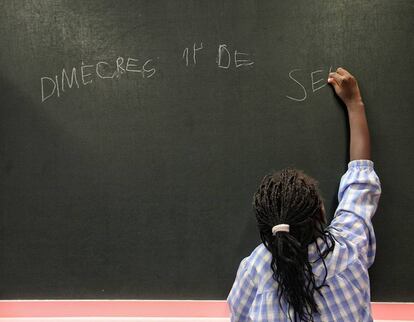 DIMECRES 14 DE SE